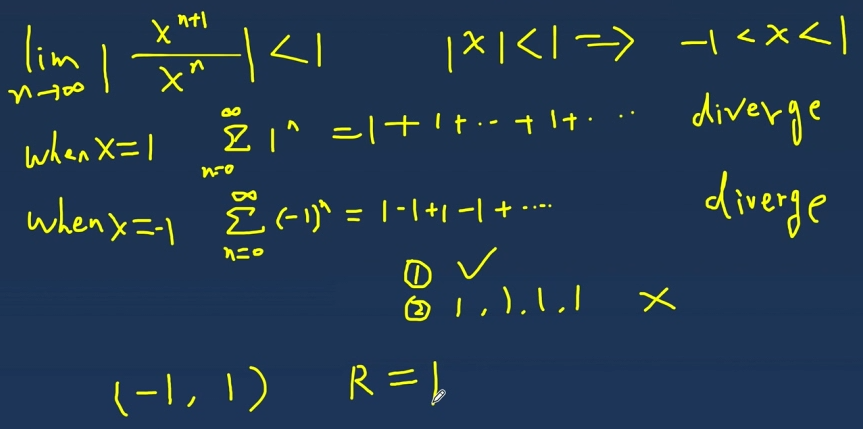 lim n→∞ | x^(n+1) / x^n | < 1 |x| < 1 ⇒ -1 < x < 1
when x = 1 ∑_{n=0}^{∞} 1^n = 1 + 1 + ... + 1 + .... diverge
when x = -1 ∑_{n=0}^{∞} (-1)^n = 1 - 1 + 1 - 1 + .... diverge
① ✓
② 1, 1, 1, 1 ×
(-1, 1) R = 1